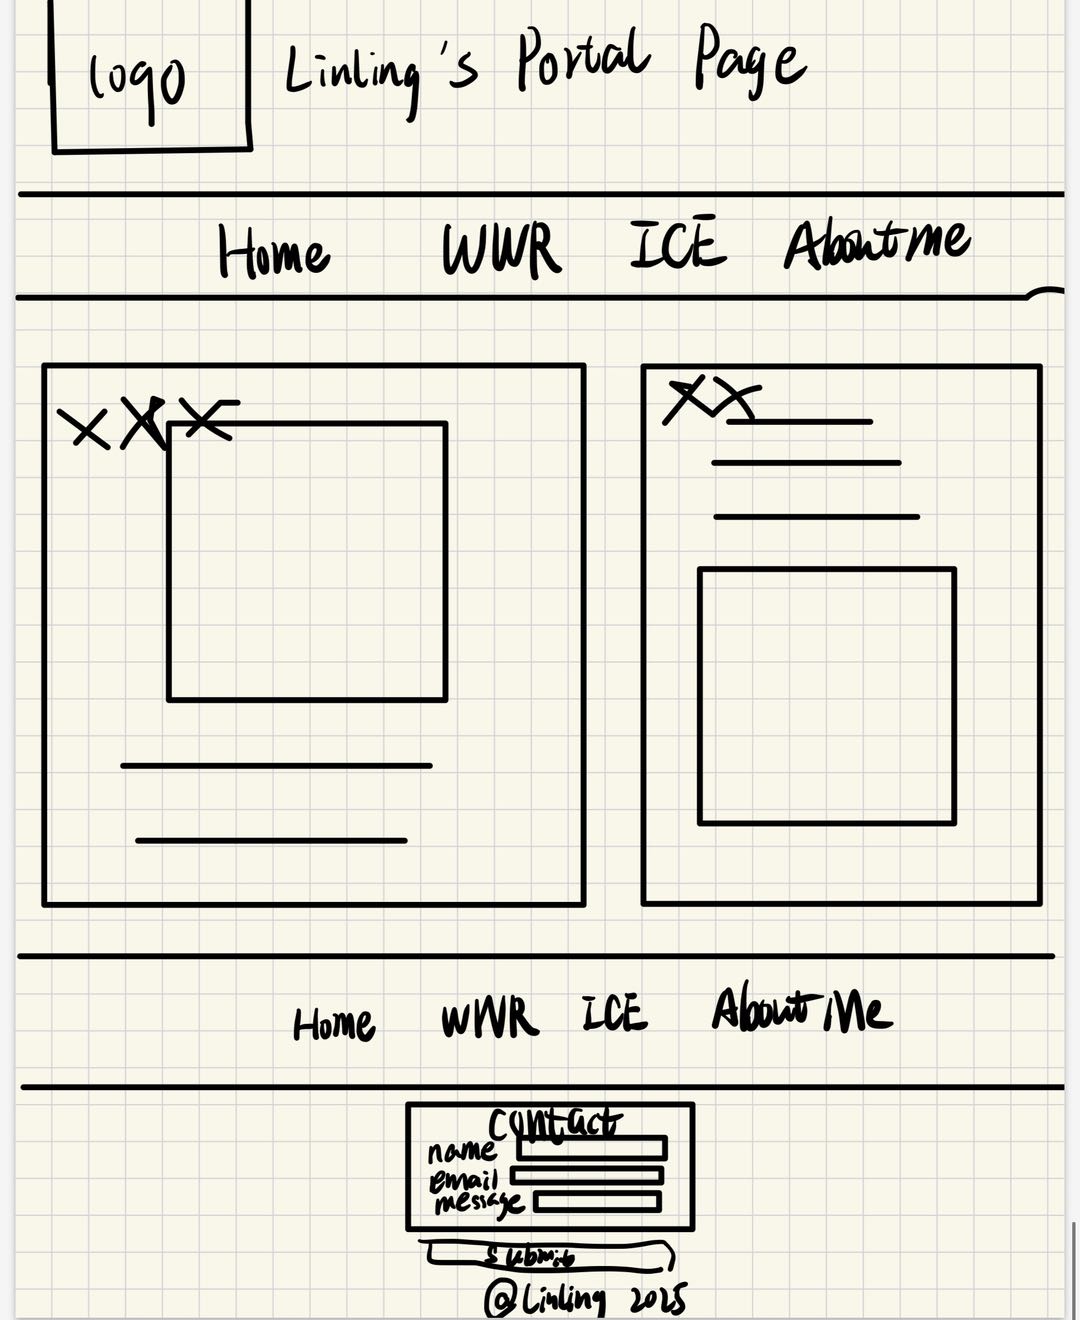 logo
Linling's Portal Page
Home WWR ICE About me
XXX
XX
Home WWR ICE About Me
contact
name
email
message
submit
@Linling 2025